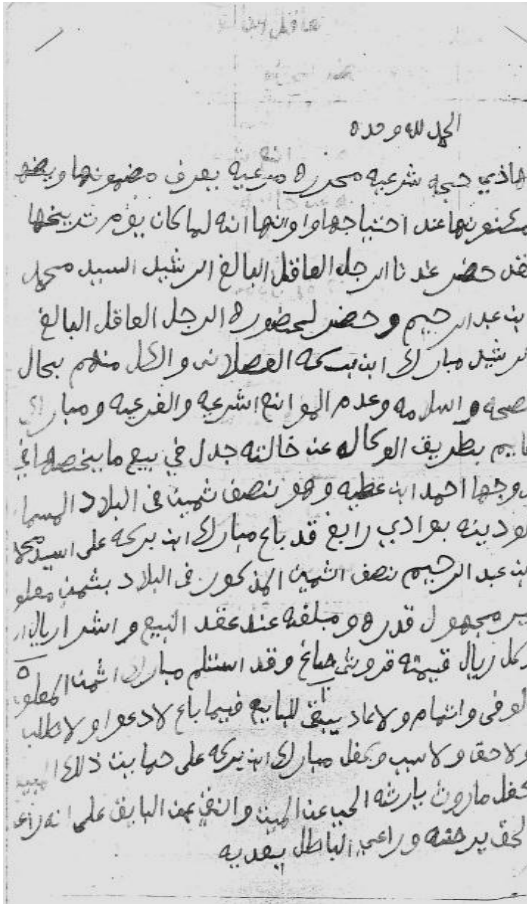 الحمد لله وحده
هاذي حجه شرعيه محرره مرعيه يعرف مضمونها ويضها
مكنونها عند احتياجها واوانها انه لما كان يوم تاريخها
فقد حضر عندنا الرجل العاقل البالغ الرشيد السيد محمد
ابن عبد الرحيم وحضر لحضوره الرجل العاقل البالغ
الرشيد مبارك ابن بركه والكل منهم بحال
صحه واسلامه وعدم الموانع الشرعيه والفرعيه ومبارك
قايم بطريق الوكاله عن خالته جدل في بيع ما يخصها في
زوجها احمد ابن عطيه وهو نصف ثمين في البلاد المسما
بوادي رابغ قد باع مبارك ابن بركه على السيد محمد
ابن عبد الرحيم نصف الثمين المذكور في البلاد بثمن معلو
غير مجهول قدره ومبلغه عند عقد البيع واشرا ريال
كل ريال قيمته قروش وقد استلم مبارك الثمن المعلوم
الوفى والتمام ولا عاد يبقى للبايع فيما باع لا دعوا ولا طلب
ولا حق ولا سبب وكفل مبارك ابن بركه على ذلك
كفل
الحق يرجعه وراعي الباطل يفديه